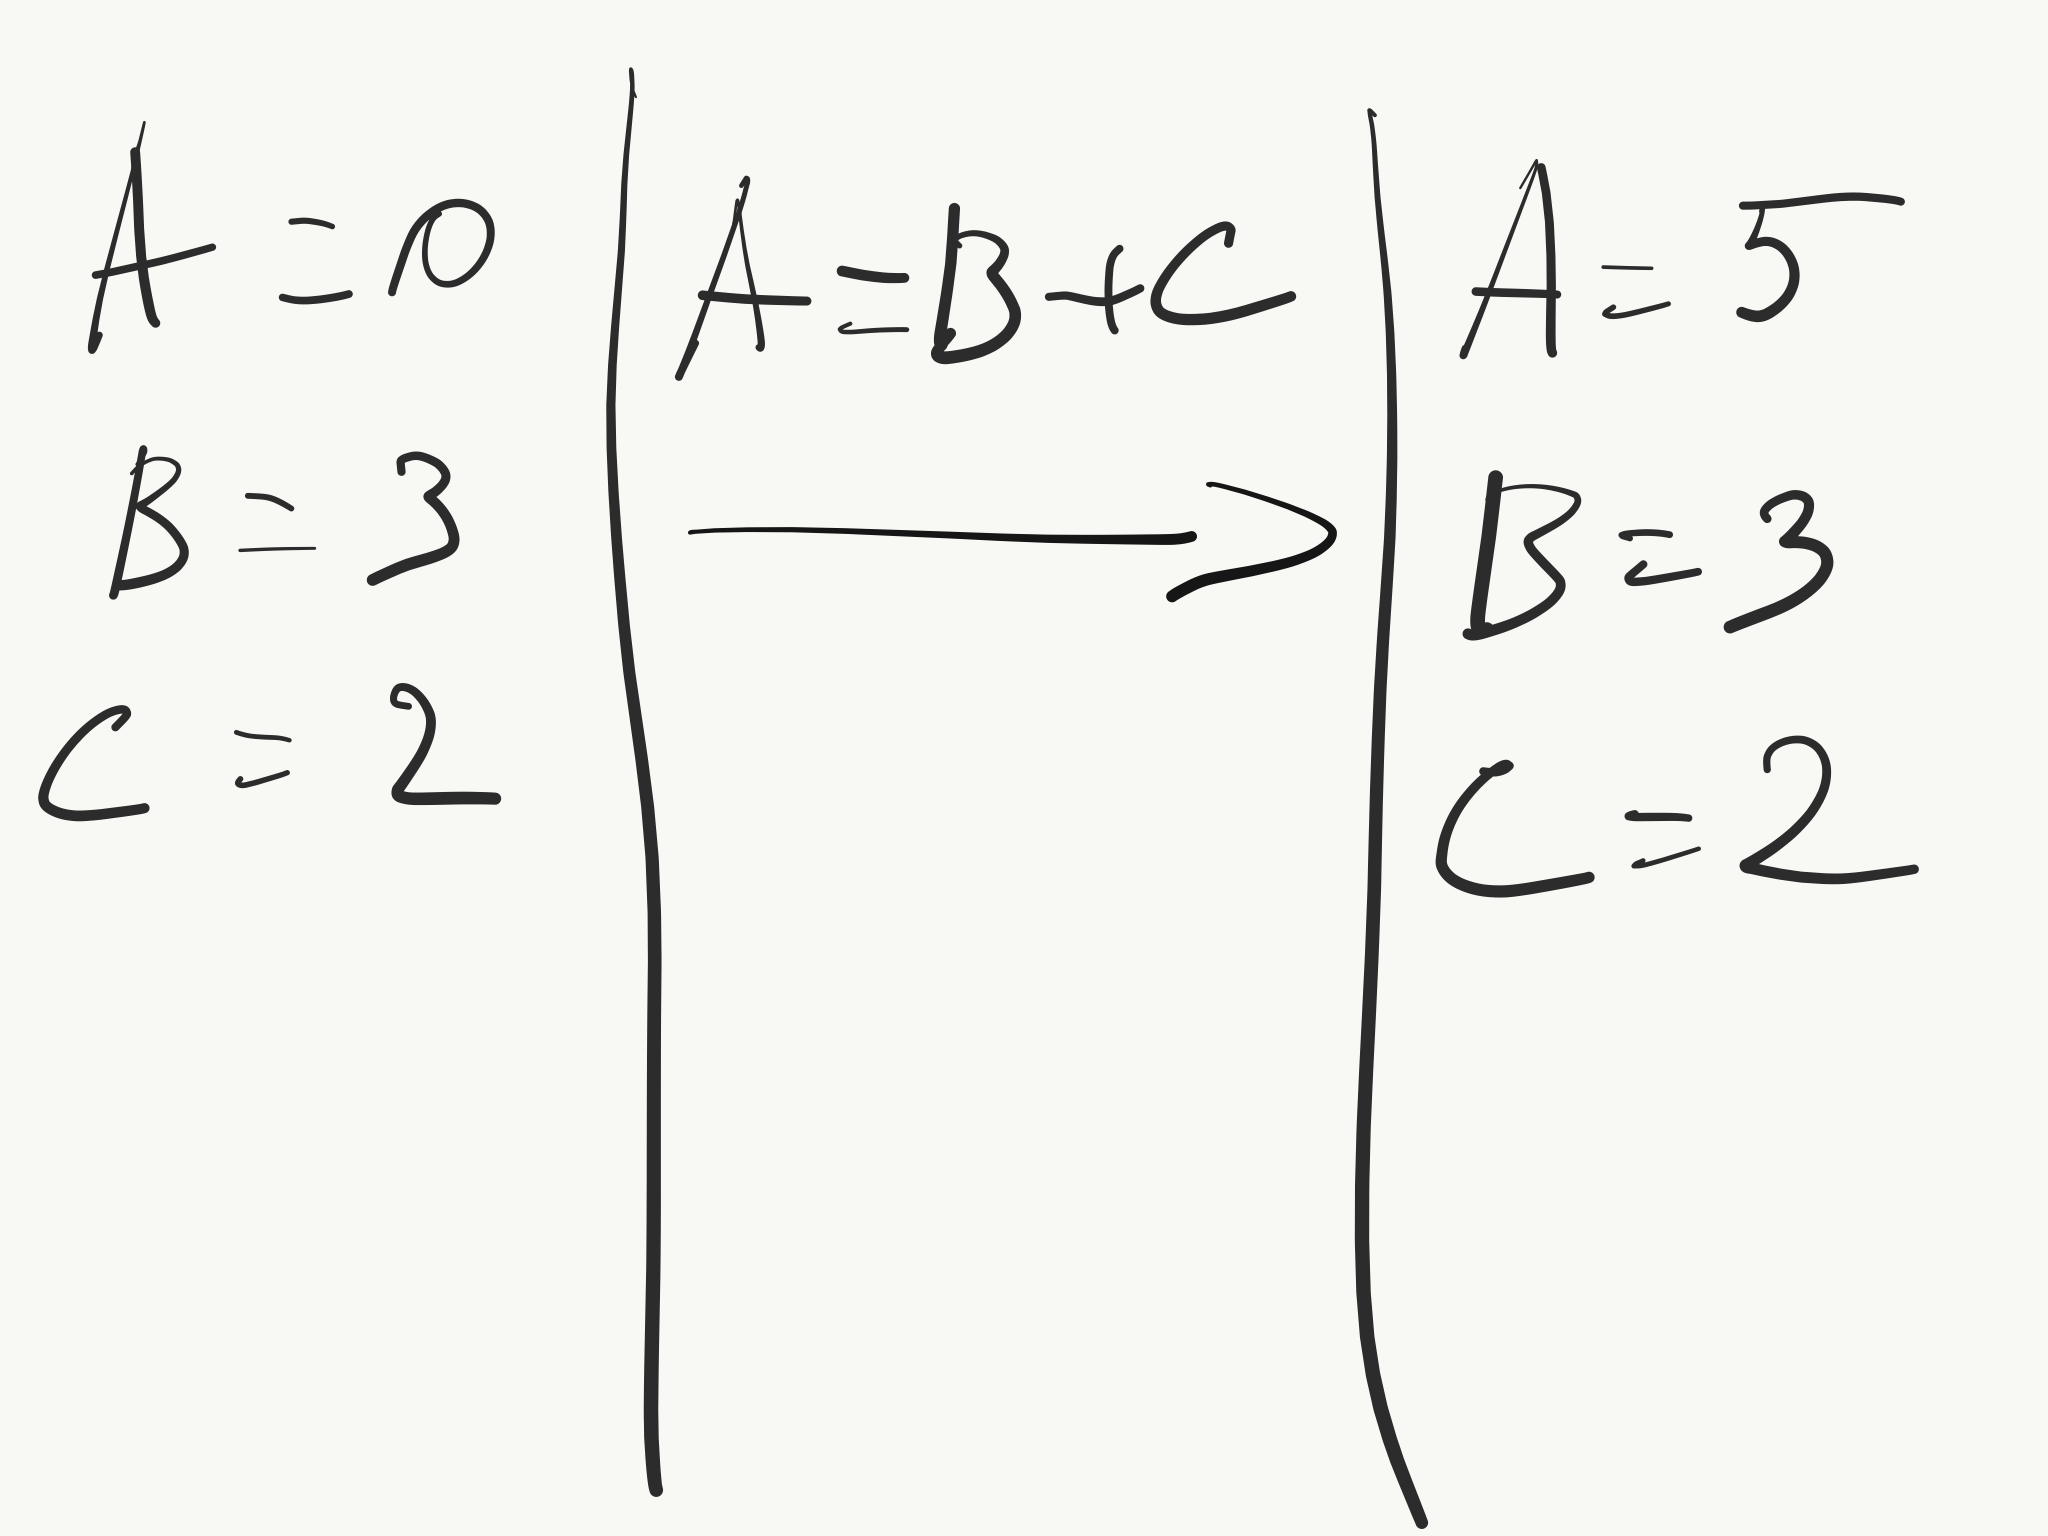 A = 0
B = 3
C = 2
A = B + C
A = 5
B = 3
C = 2